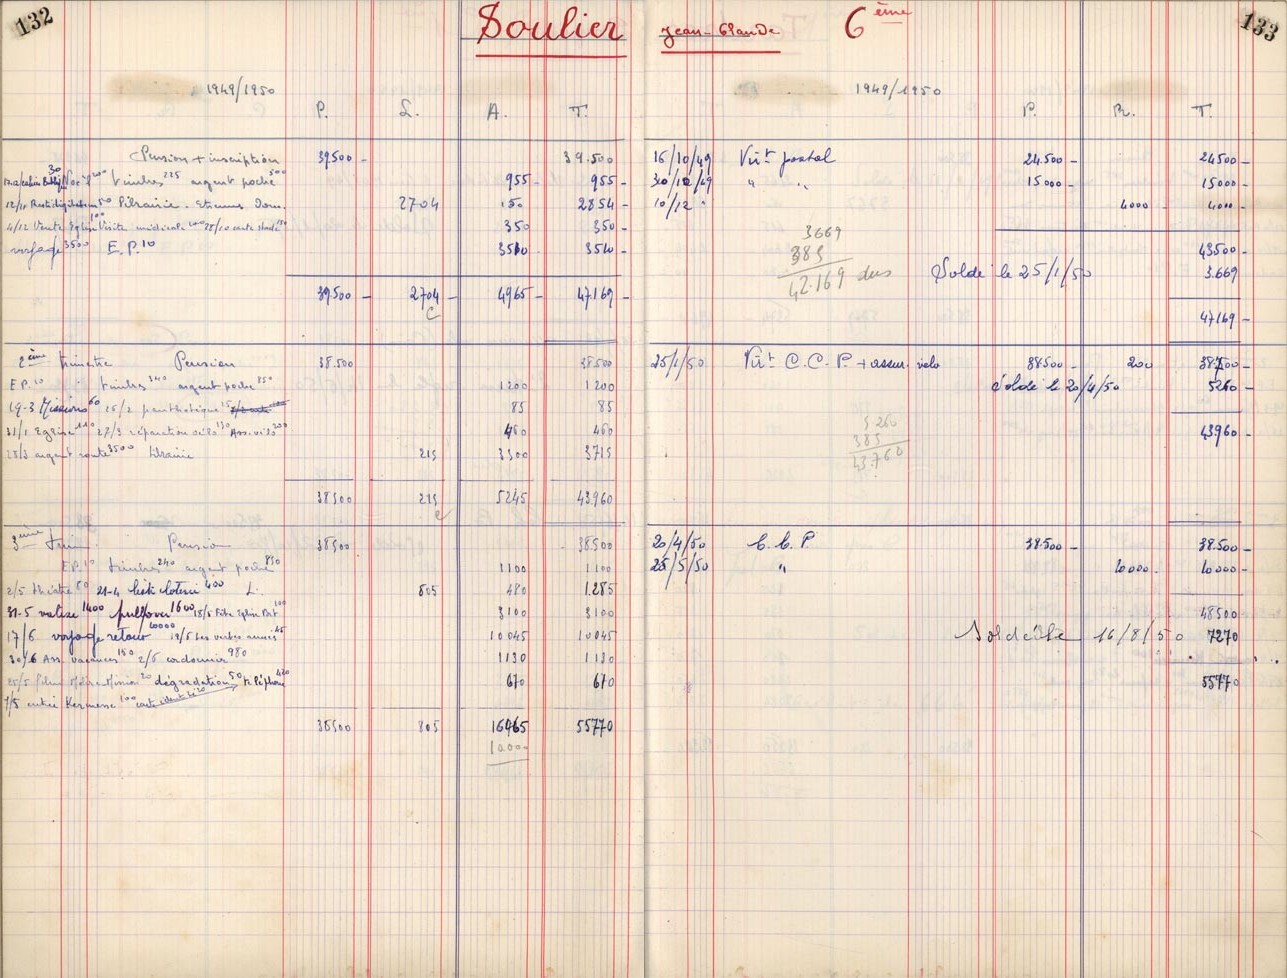 132
Soulier Jean-Claude 6ème
133
1949/1950
P. L. A. T.
Pension + inscription 39500 - 39.500
timbres 225 argent poche 500 955 - 955 -
12/11 50 Librairie. Etrennes Dom. 2704 150 2854 -
4/12 Vente Eglise 100 Visite médicale 100 350 350 -
voyage 3500 E.P. 10 3510 3510 -
39.500 - 2704 - 4965 - 47169 -
2ème trimestre Pension 38.500 38.500
E.P. 10 timbres 340 argent poche 850 1200 1200
19-3 Missions 60 25/2 85 85
31/1 Eglise 110 27/3 réparation vélo 150 Ass. vélo 200 460 460
25/3 argent route 3500 librairie 215 3500 3715
38500 215 5245 43960
3ème trim. Pension 38500 38.500
E.P. 10 timbres 240 argent poche 850 1100 1100
2/5 théâtre 80 21-4 loterie 400 L. 805 480 1.285
31-5 valise 1400 pullover 1600 18/5 Fête Eglise 100 3100 3100
17/6 voyage retour 10000 19/5 Les vertes années 45 10045 10045
30/6 Ass. vacances 150 2/6 cordonnier 980 1130 1130
20 dégradation 50 téléphone 670 670
7/5 entrée Kermesse 100 carte identité 20
38500 805 16465 55770
10000
1949/1950
P. R. T.
16/10/49 Virt postal 24.500 - 24500 -
30/12/49 " " 15000 - 15000 -
10/12 " 4000 - 4000 -
3669
385
42.169 dus
43500 -
Soldé le 25/1/50 3.669
47169 -
25/1/50 Virt C.C.P. + assur. vélo 38500 - 200 38700 -
Soldé le 20/4/50 5260 -
5260
385
43.760
43960 -
20/4/50 C.C.P. 38.500 - 38.500 -
25/5/50 " 10000 - 10000 -
48500
Soldé le 16/8/50 7270
55770